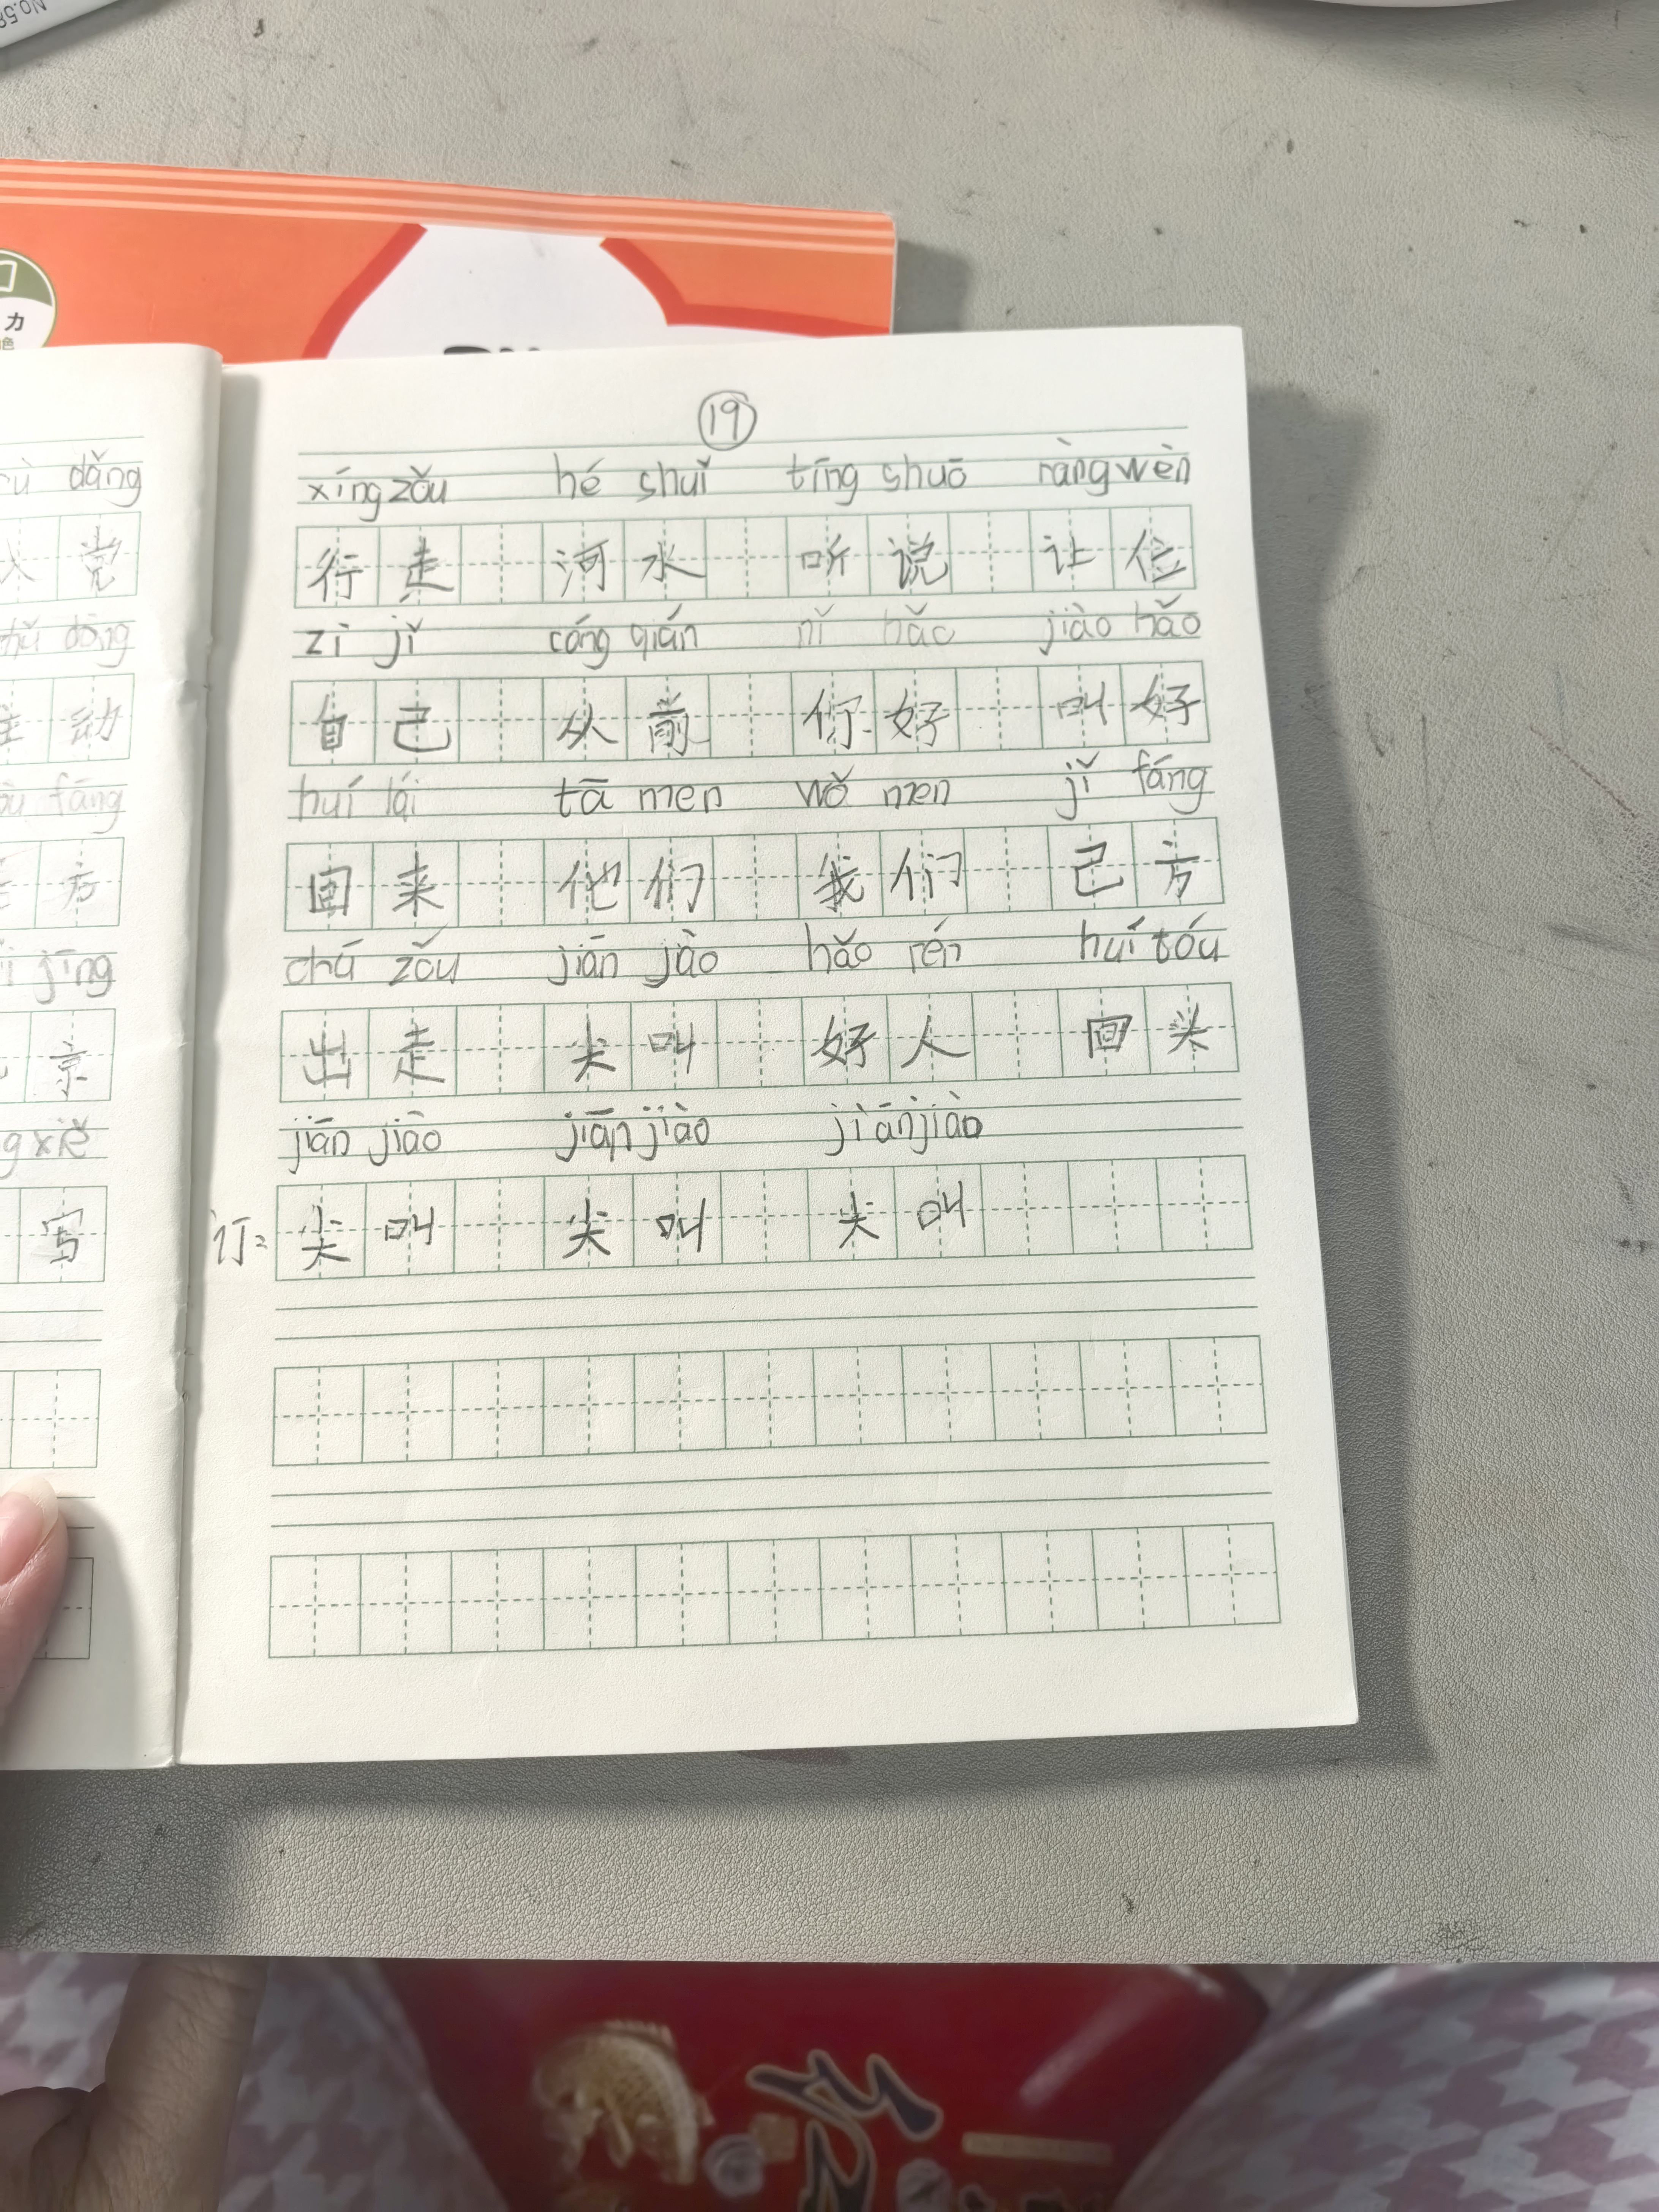 No.58
力
色
19
xíng zǒu hé shuǐ tīng shuō ràng wèn
行走 河水 听说 让位
zì jǐ cóng qián nǐ hǎo jiào hǎo
自己 从前 你好 叫好
huí lái tā men wǒ men jǐ fáng
回来 他们 我们 己方
chū zǒu jiān jào hǎo rén huí tóu
出走 尖叫 好人 回头
jiān jiào jiān jiào jiān jiào
订: 尖叫 尖叫 尖叫
dǎng
入党
dòng
主动
fāng
方
jīng
京
xiě
写